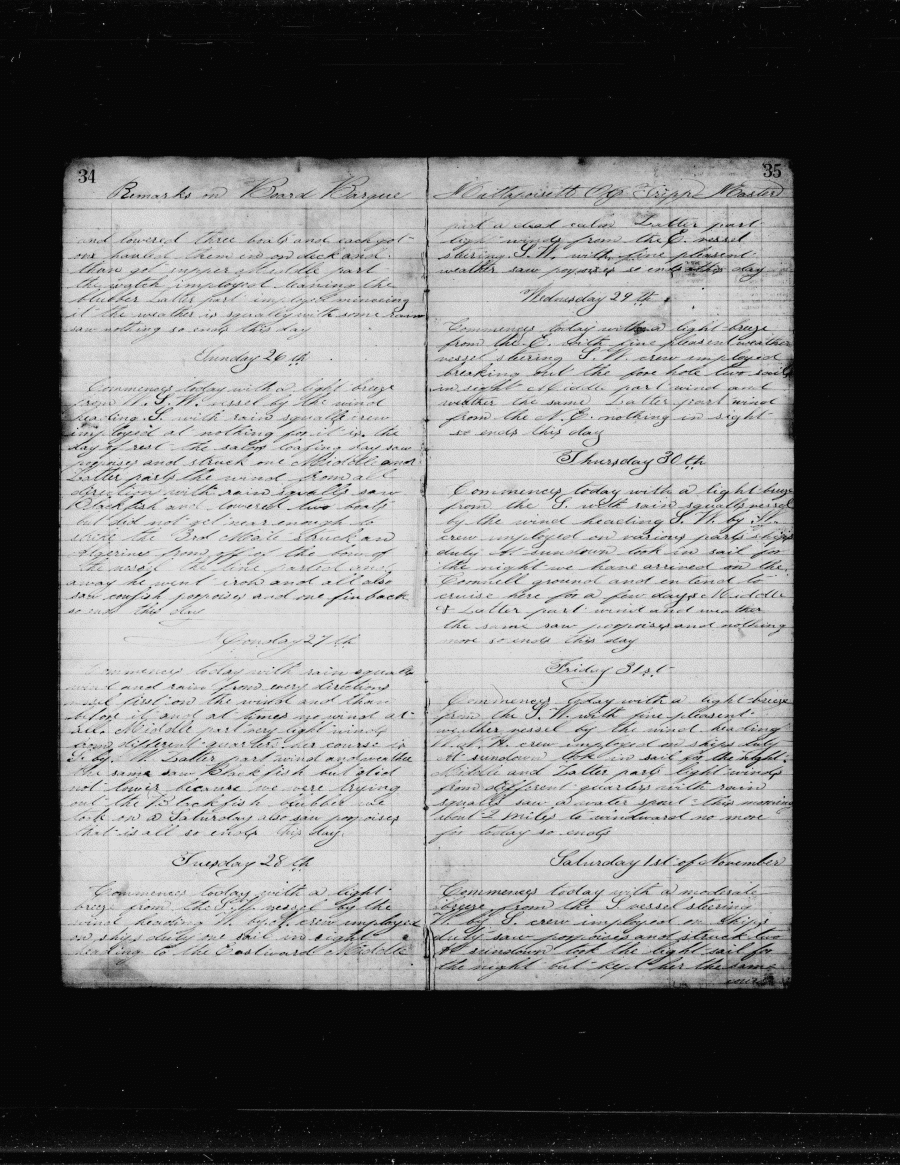 34
Remarks on Board Barque
and lowered three boats and each got
one hauled them in on deck and
than got supper Middle part
the watch employed leaning the
blubber Latter part employed minceing
it the weather is squally with some rain
saw nothing so ends this day
Sunday 26th
Commences today with a light breeze
from W.S.W. vessel by the wind
heading S. with rain squalls crew
employed at nothing for it is the
day of rest the sailors loafing day saw
popoises and struck one Middle and
Latter parts the wind from all
direction with rain squalls saw
Blackfish and lowered two boats
but did not get near enough to
strike the 3rd Mate struck an
from off of the bow of
the vessel the line parted and
away he went iron and all also
saw cowfish popoises and one finback
so ends this day
Monday 27th
Commences today with rain squalls
wind and rain from every direction
vessel first on the wind and than
before it and at times no wind at
all Middle part very light winds
from different quarters her course is
S. by W. Latter part wind and weather
the same saw Blackfish but did
not lower because we were trying
out the Blackfish blubber we
took on a Saturday also saw popoises
that is all so ends this day
Tuesday 28th
Commences today with a light
breeze from the vessel by the
wind heading W. by crew employed
on ships duty one sail in sight
heading to the Eastward Middle
35
Mattapoisett Tripp Master
part a dead calm Latter part
light winds from the E. vessel
steering S.W. with fine pleasent
weather saw popoises so ends this day
Wednesday 29th
Commences today with a light breeze
from the E. with fine pleasent weather
vessel steering S.W. crew employed
breaking out the fore hole two sails
in sight Middle part wind and
weather the same Latter part wind
from the N.E. nothing in sight
so ends this day
Thursday 30th
Commences today with a light breeze
from the S. with rain squalls vessel
by the wind heading S.W. by
crew employed on various parts ships
duty At sundown took in sail for
the night we have arrived on the
Connell ground and entend to
cruise here for a few days Middle
& Latter part wind and weather
the same saw popoises and nothing
more so ends this day
Friday 31st
Commences today with a light breeze
from the S.W. with fine pleasent
weather vessel by the wind heading
crew employed on ships duty
At sundown took in sail for the night
Middle and Latter parts light winds
from different quarters with rain
squalls saw a water spout this morning
about 2 miles to windward no more
for today so ends
Saturday 1st of November
Commences today with a moderate
breeze from the S vessel steering
W by S. crew employed on ships
duty saw popoises and struck two
At sundown took the light sail for
the night but kept her the same